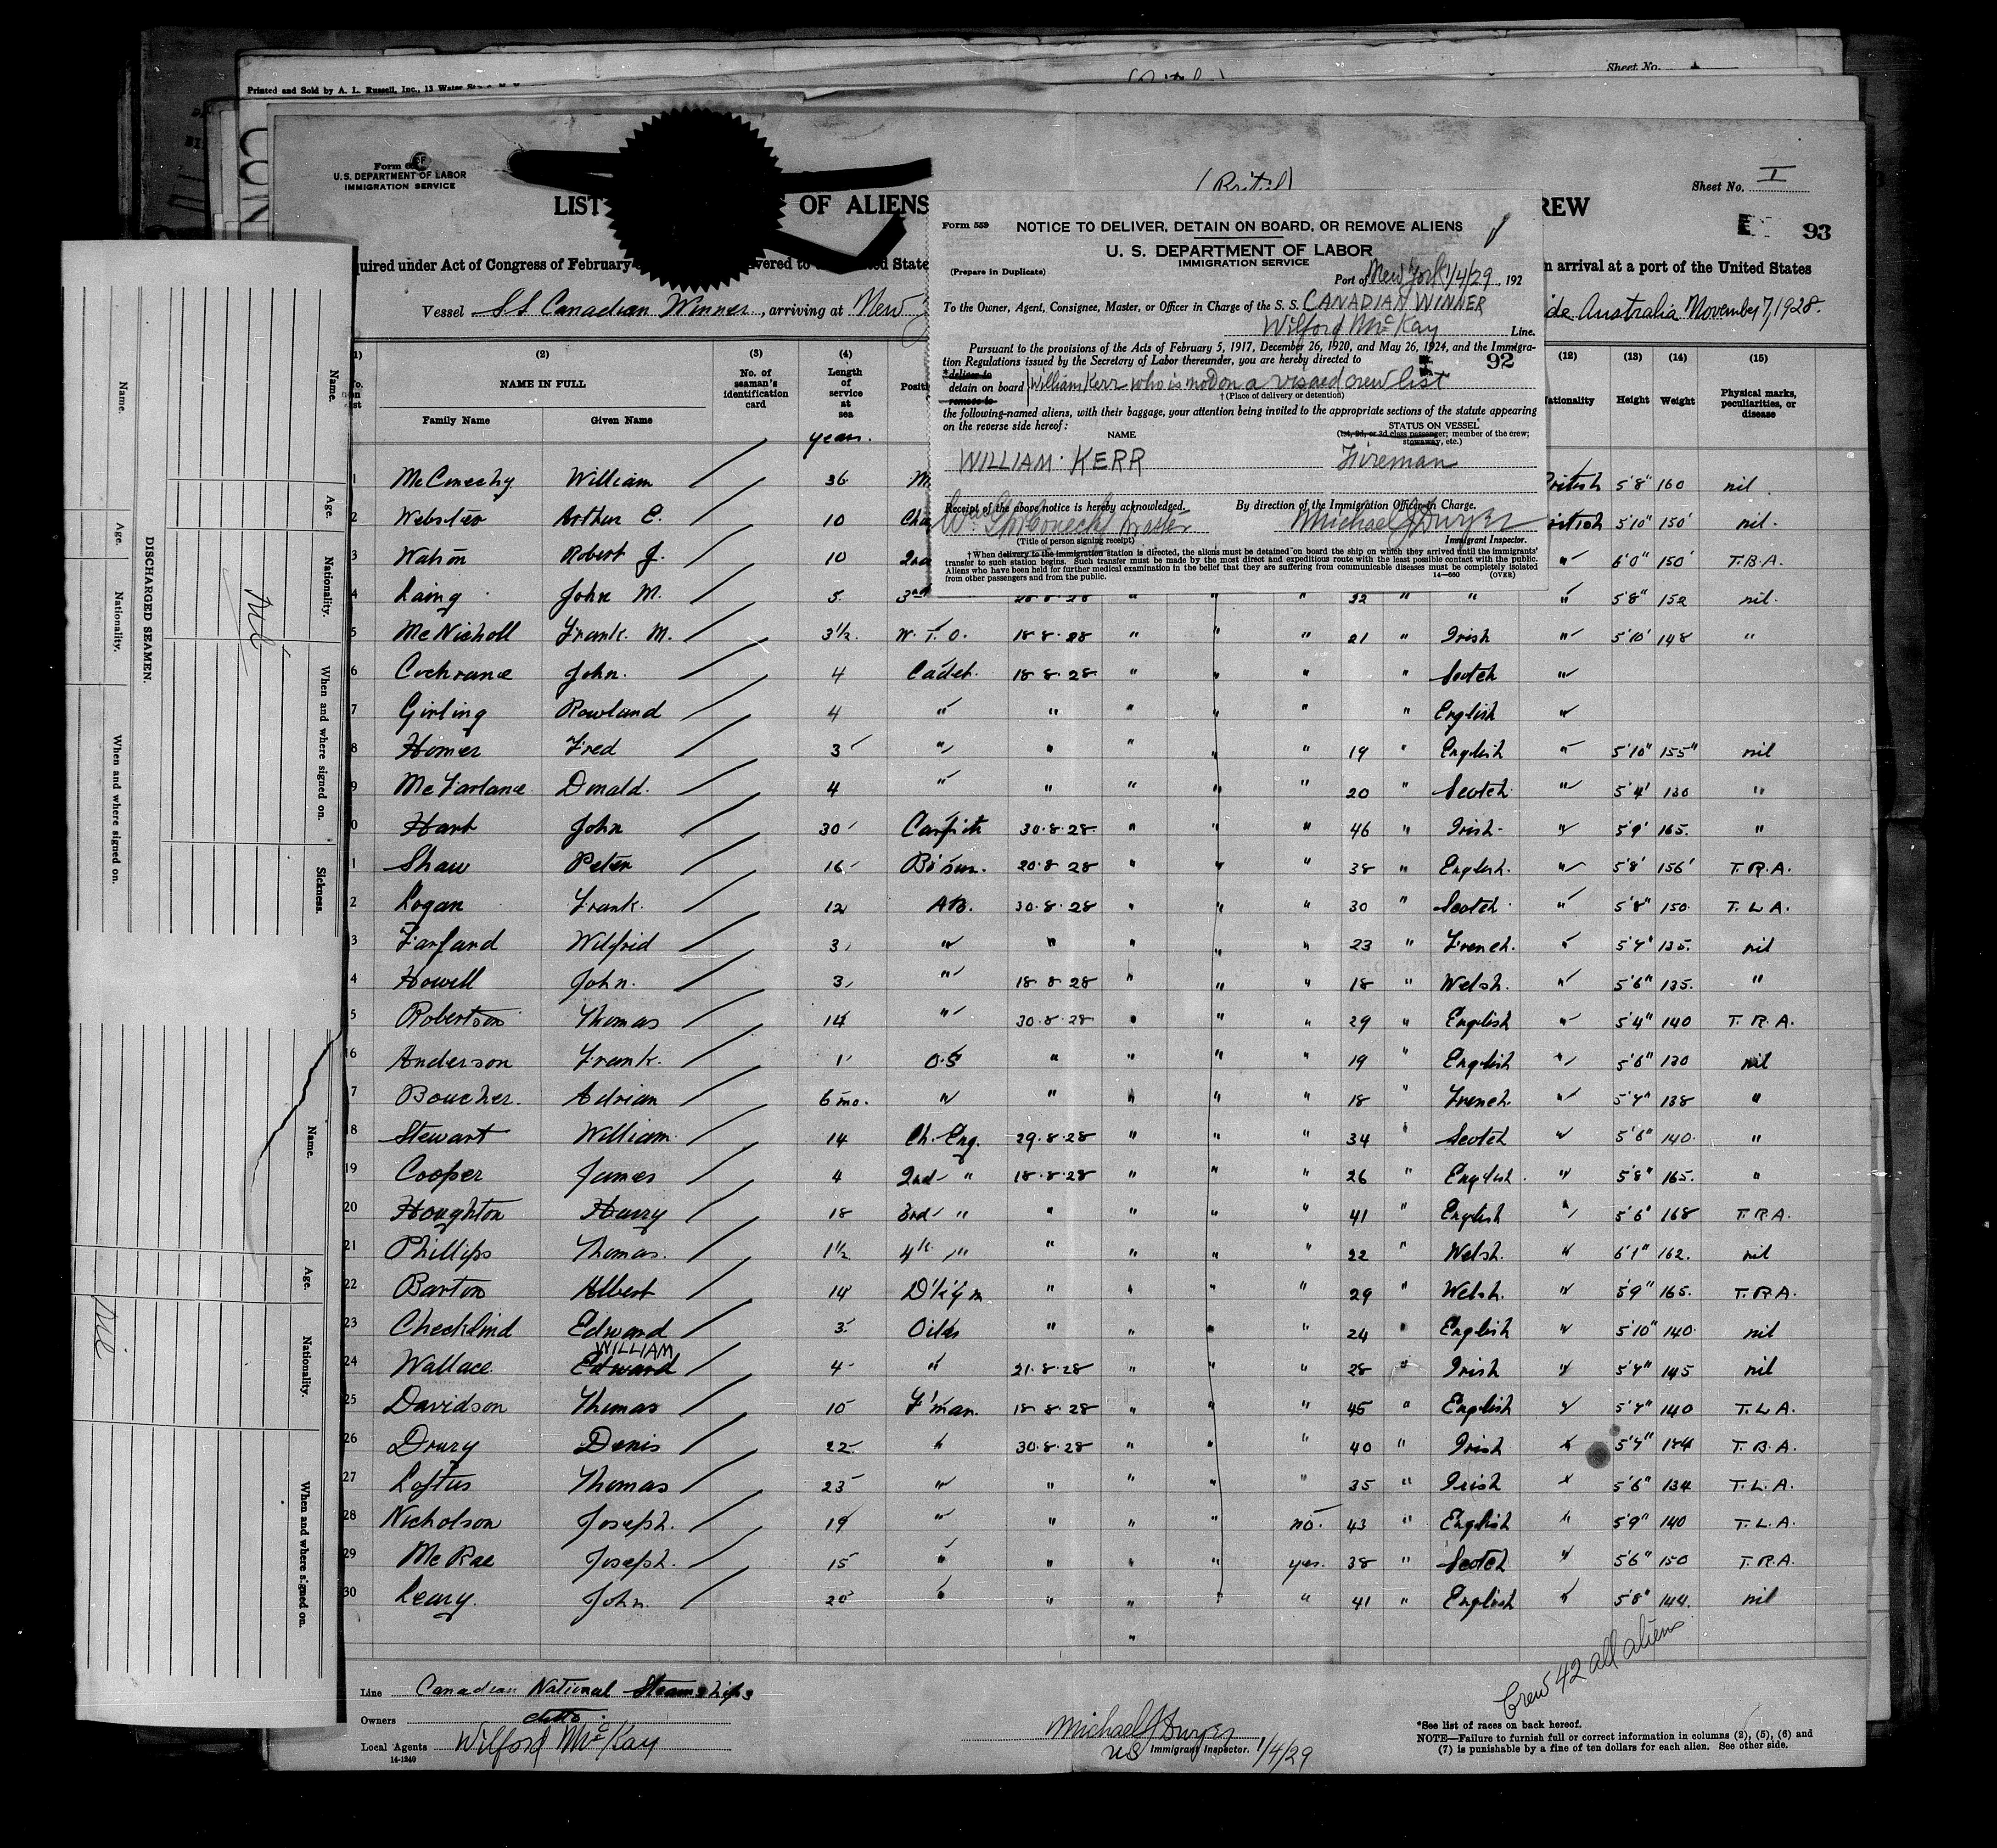 Sheet No.
Printed and Sold by A. L. Russell, Inc., 13 Water
Form
U.S. DEPARTMENT OF LABOR
IMMIGRATION SERVICE
Sheet No. I
LIST OF ALIENS REW
93
quired under Act of Congress of February vered to ited State n arrival at a port of the United States
Vessel SS Canadian Winner, arriving at New ide Australia November 7, 1928.
Form 559 NOTICE TO DELIVER, DETAIN ON BOARD, OR REMOVE ALIENS
U. S. DEPARTMENT OF LABOR
IMMIGRATION SERVICE
(Prepare in Duplicate)
Port of New York 1/4/29, 192
To the Owner, Agent, Consignee, Master, or Officer in Charge of the S. S. CANADIAN WINNER
Wilford McKay Line.
Pursuant to the provisions of the Acts of February 5, 1917, December 26, 1920, and May 26, 1924, and the Immigra-
tion Regulations issued by the Secretary of Labor thereunder, you are hereby directed to 92
*deliver to
detain on board William Kerr who is not on a visaed crew list
remove to
†(Place of delivery or detention)
the following-named aliens, with their baggage, your attention being invited to the appropriate sections of the statute appearing
on the reverse side hereof:
NAME STATUS ON VESSEL
(1st, 2d, or 3d class passenger; member of the crew; stowaway, etc.)
WILLIAM KERR Fireman
Receipt of the above notice is hereby acknowledged. By direction of the Immigration Officer in Charge.
Master Michael J Dwyer
(Title of person signing receipt) Immigrant Inspector.
†When delivery to the immigration station is directed, the aliens must be detained on board the ship on which they arrived until the immigrants'
transfer to such station begins. Such transfer must be made by the most direct and expeditious route with the least possible contact with the public.
Aliens who have been held for further medical examination in the belief that they are suffering from communicable diseases must be completely isolated
from other passengers and from the public. 14—660 (OVER)
(2) (3) (4) (12) (13) (14) (15)
NAME IN FULL No. of seaman's identification card Length of service at sea Height Weight Physical marks, peculiarities, or disease
Family Name Given Name
years.
1 McConechy William 36 British 5'8" 160 nil
2 Webster Arthur E. 10 5'10" 150 nil.
3 Watson Robert J. 10 2nd " 6'0" 150 T.B.A.
4 Laing John M. 5 3rd 28 " " " 32 " " " 5'8" 152 nil.
5 McNicholl Frank M. 3½ W.T.O. 18·8·28 " " " 21 " Irish " 5'10" 148 "
6 Cochrane John. 4 Cadet. 18·8·28 " " " " Scotch "
7 Girling Rowland 4 " " " " " " English "
8 Homer Fred 3 " " " " " 19 " English " 5'10" 155" nil
9 McFarlane Donald. 4 " " " " " 20 " Scotch " 5'4" 130 "
0 Hart John 30 30·8·28 " " " 46 " Irish " 5'9" 165. "
1 Shaw Peter 16 Bo'sun. 20·8·28 " " " 38 " English. " 5'8" 156 T.R.A.
2 Logan Frank. 12 AB. 30·8·28 " " " 30 " Scotch " 5'8" 150 T.L.A.
3 Farfard Wilfrid 3 " " " " " 23 " French. " 5'7" 135. nil
4 Howell John. 3 " 18·8·28 " " " 18 " Welsh. " 5'6" 135. "
5 Robertson Thomas 14 " 30·8·28 " " " 29 " English " 5'4" 140 T.R.A.
16 Anderson Frank. 1 O.S " " " " 19 " English " 5'6" 130 nil
7 Boucher. Adrian 6 mo. " " " " " 18 " French. " 5'7" 138 "
18 Stewart William 14 Ch. Eng. 29·8·28 " " " 34 " Scotch " 5'6" 140. "
19 Cooper James 4 2nd " 18·8·28 " " " 26 " English. " 5'8" 165. "
20 Houghton Harry 18 3rd " " " " " 41 " English " 5'6" 168 T.R.A.
21 Phillips Thomas. 1½ 4th " " " " " 22 " Welsh. " 6'1" 162. nil
22 Barton Albert 14 " " " " 29 " Welsh. " 5'9" 165. T.R.A.
23 Checklind Edward 3 Oiler " " " " 24 " English " 5'10" 140. nil
WILLIAM
24 Wallace. Edward 4 " 21·8·28 " " " 28 " Irish " 5'7" 145 nil
25 Davidson Thomas 10 F'man. 18·8·28 " " " 45 " English " 5'7" 140 T.L.A.
26 Drury Denis 22 " 30·8·28 " " " 40 " Irish " 5'7" 184 T.B.A.
27 Loftus Thomas 23 " " " " 35 " Irish " 5'6" 134 T.L.A.
28 Nicholson Joseph. 19 " " " " no. 43 " English " 5'9" 140 T.L.A.
29 McRae Joseph. 15 " " " " yes. 38 " Scotch " 5'6" 150 T.R.A.
30 Leary. John. 20 " " " " " 41 " English " 5'8" 144. nil
Crew 42 all aliens
Line Canadian National Steamships
Owners ditto.
Local Agents Wilford McKay
14-1240
Michael J Dwyer
US Immigrant Inspector. 1/4/29
*See list of races on back hereof.
NOTE—Failure to furnish full or correct information in columns (2), (5), (6) and
(7) is punishable by a fine of ten dollars for each alien. See other side.
DISCHARGED SEAMEN.
Name. Age. Nationality. When and where signed on. Sickness.
Nil
Name. Age. Nationality. When and where signed on.
Name. Age. Nationality. When and where signed on.
Nil